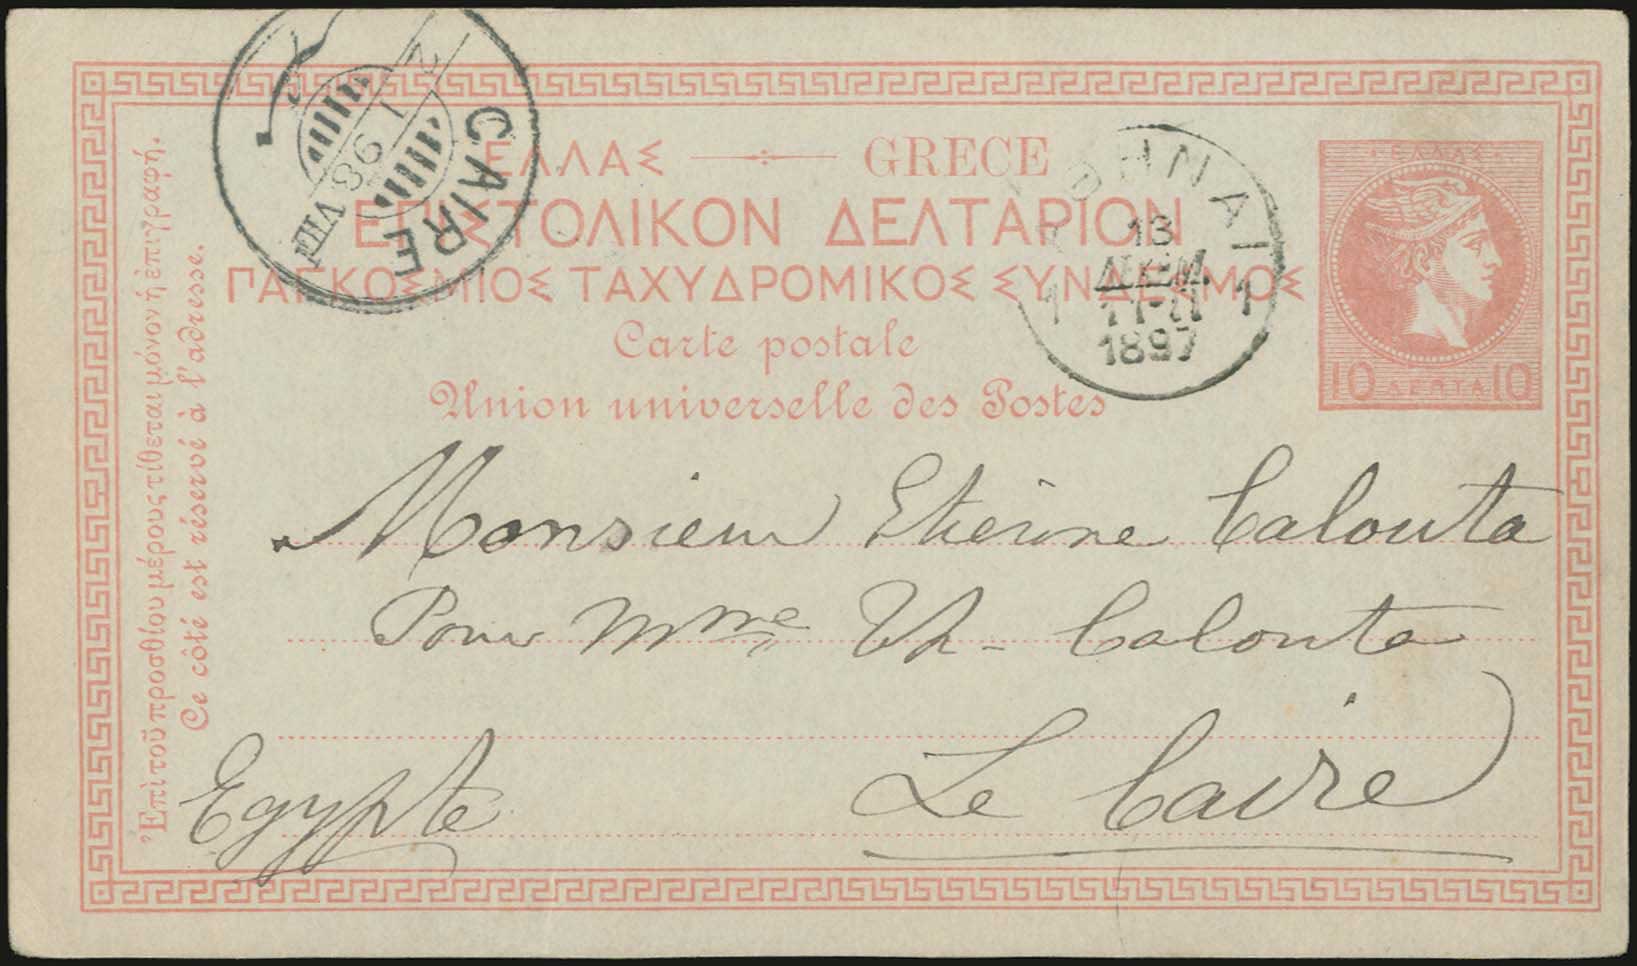 ΕΛΛΑΣ GRECE
ΕΠΙΣΤΟΛΙΚΟΝ ΔΕΛΤΑΡΙΟΝ
ΠΑΓΚΟΣΜΙΟΣ ΤΑΧΥΔΡΟΜΙΚΟΣ ΣΥΝΔΕΣΜΟΣ
Carte postale
Union universelle des Postes
Ἐπὶ τοῦ προσθίου μέρους τίθεται μόνον ἡ ἐπιγραφή.
Ce côté est réservé à l'adresse.
CAIRE
2 I 98 VIII
ΑΘΗΝΑΙ
13
ΔΕΚΕΜ.
1 1
1897
ΕΛΛΑΣ
10 ΛΕΠΤΑ 10
Monsieur Etienne Calouta
Pour Mme Th- Calouta
Le Caire
Egypte